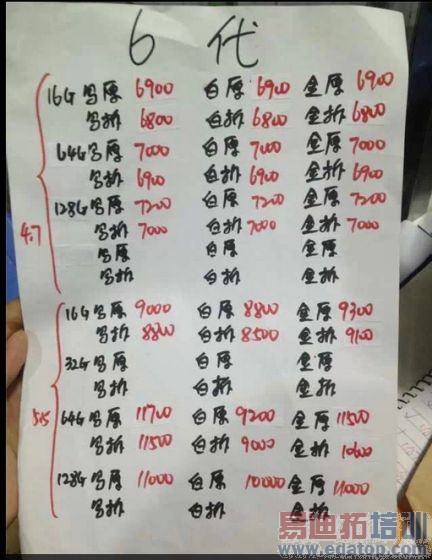 6 代
16G 黑原 6900 白原 6900 金原 6900
黑拆 6800 白拆 6800 金拆 6800
64G 黑原 7000 白原 7000 金原 7000
黑拆 6900 白拆 6900 金拆 6900
128G 黑原 7200 白原 7200 金原 7200
4.7 黑拆 7000 白拆 7000 金拆 7000
黑原 白原 金原
黑拆 白拆 金拆
16G 黑原 9000 白原 8800 金原 9300
黑拆 8800 白拆 8500 金拆 9100
32G 黑原 白原 金原
黑拆 白拆 金拆
5.5 64G 黑原 11700 白原 9200 金原 11500
黑拆 11500 白拆 9000 金拆 10600
128G 黑原 11000 白原 10000 金原 11000
黑拆 白拆 金拆
易迪拓培训
www.edatop.com